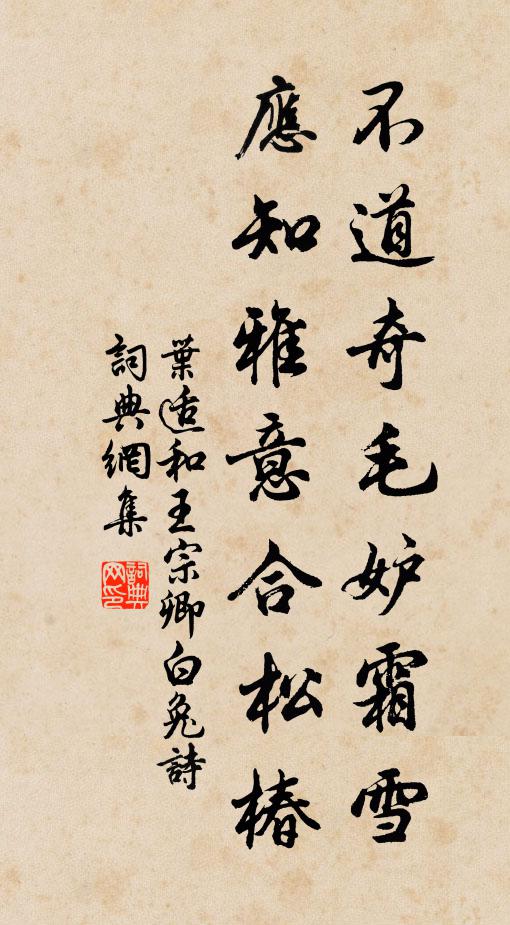 不道奇毛妒霜雪
應知雅意合松椿
葉适和王宗卿白兔詩
詞典網集
詞典网印